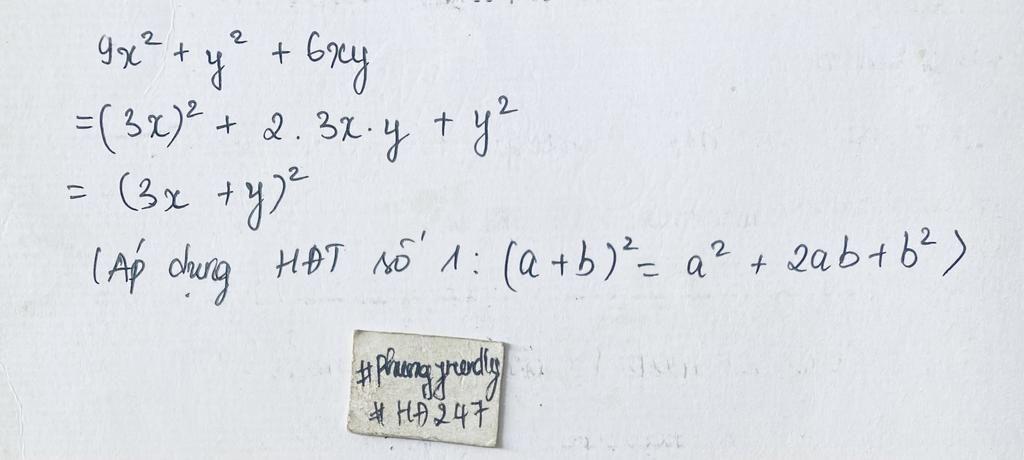 9x² + y² + 6xy
=(3x)² + 2. 3x.y + y²
= (3x +y)²
(Áp dụng HĐT số 1: (a+b)²= a² + 2ab+b²)
#Phungfriendly
# HĐ247